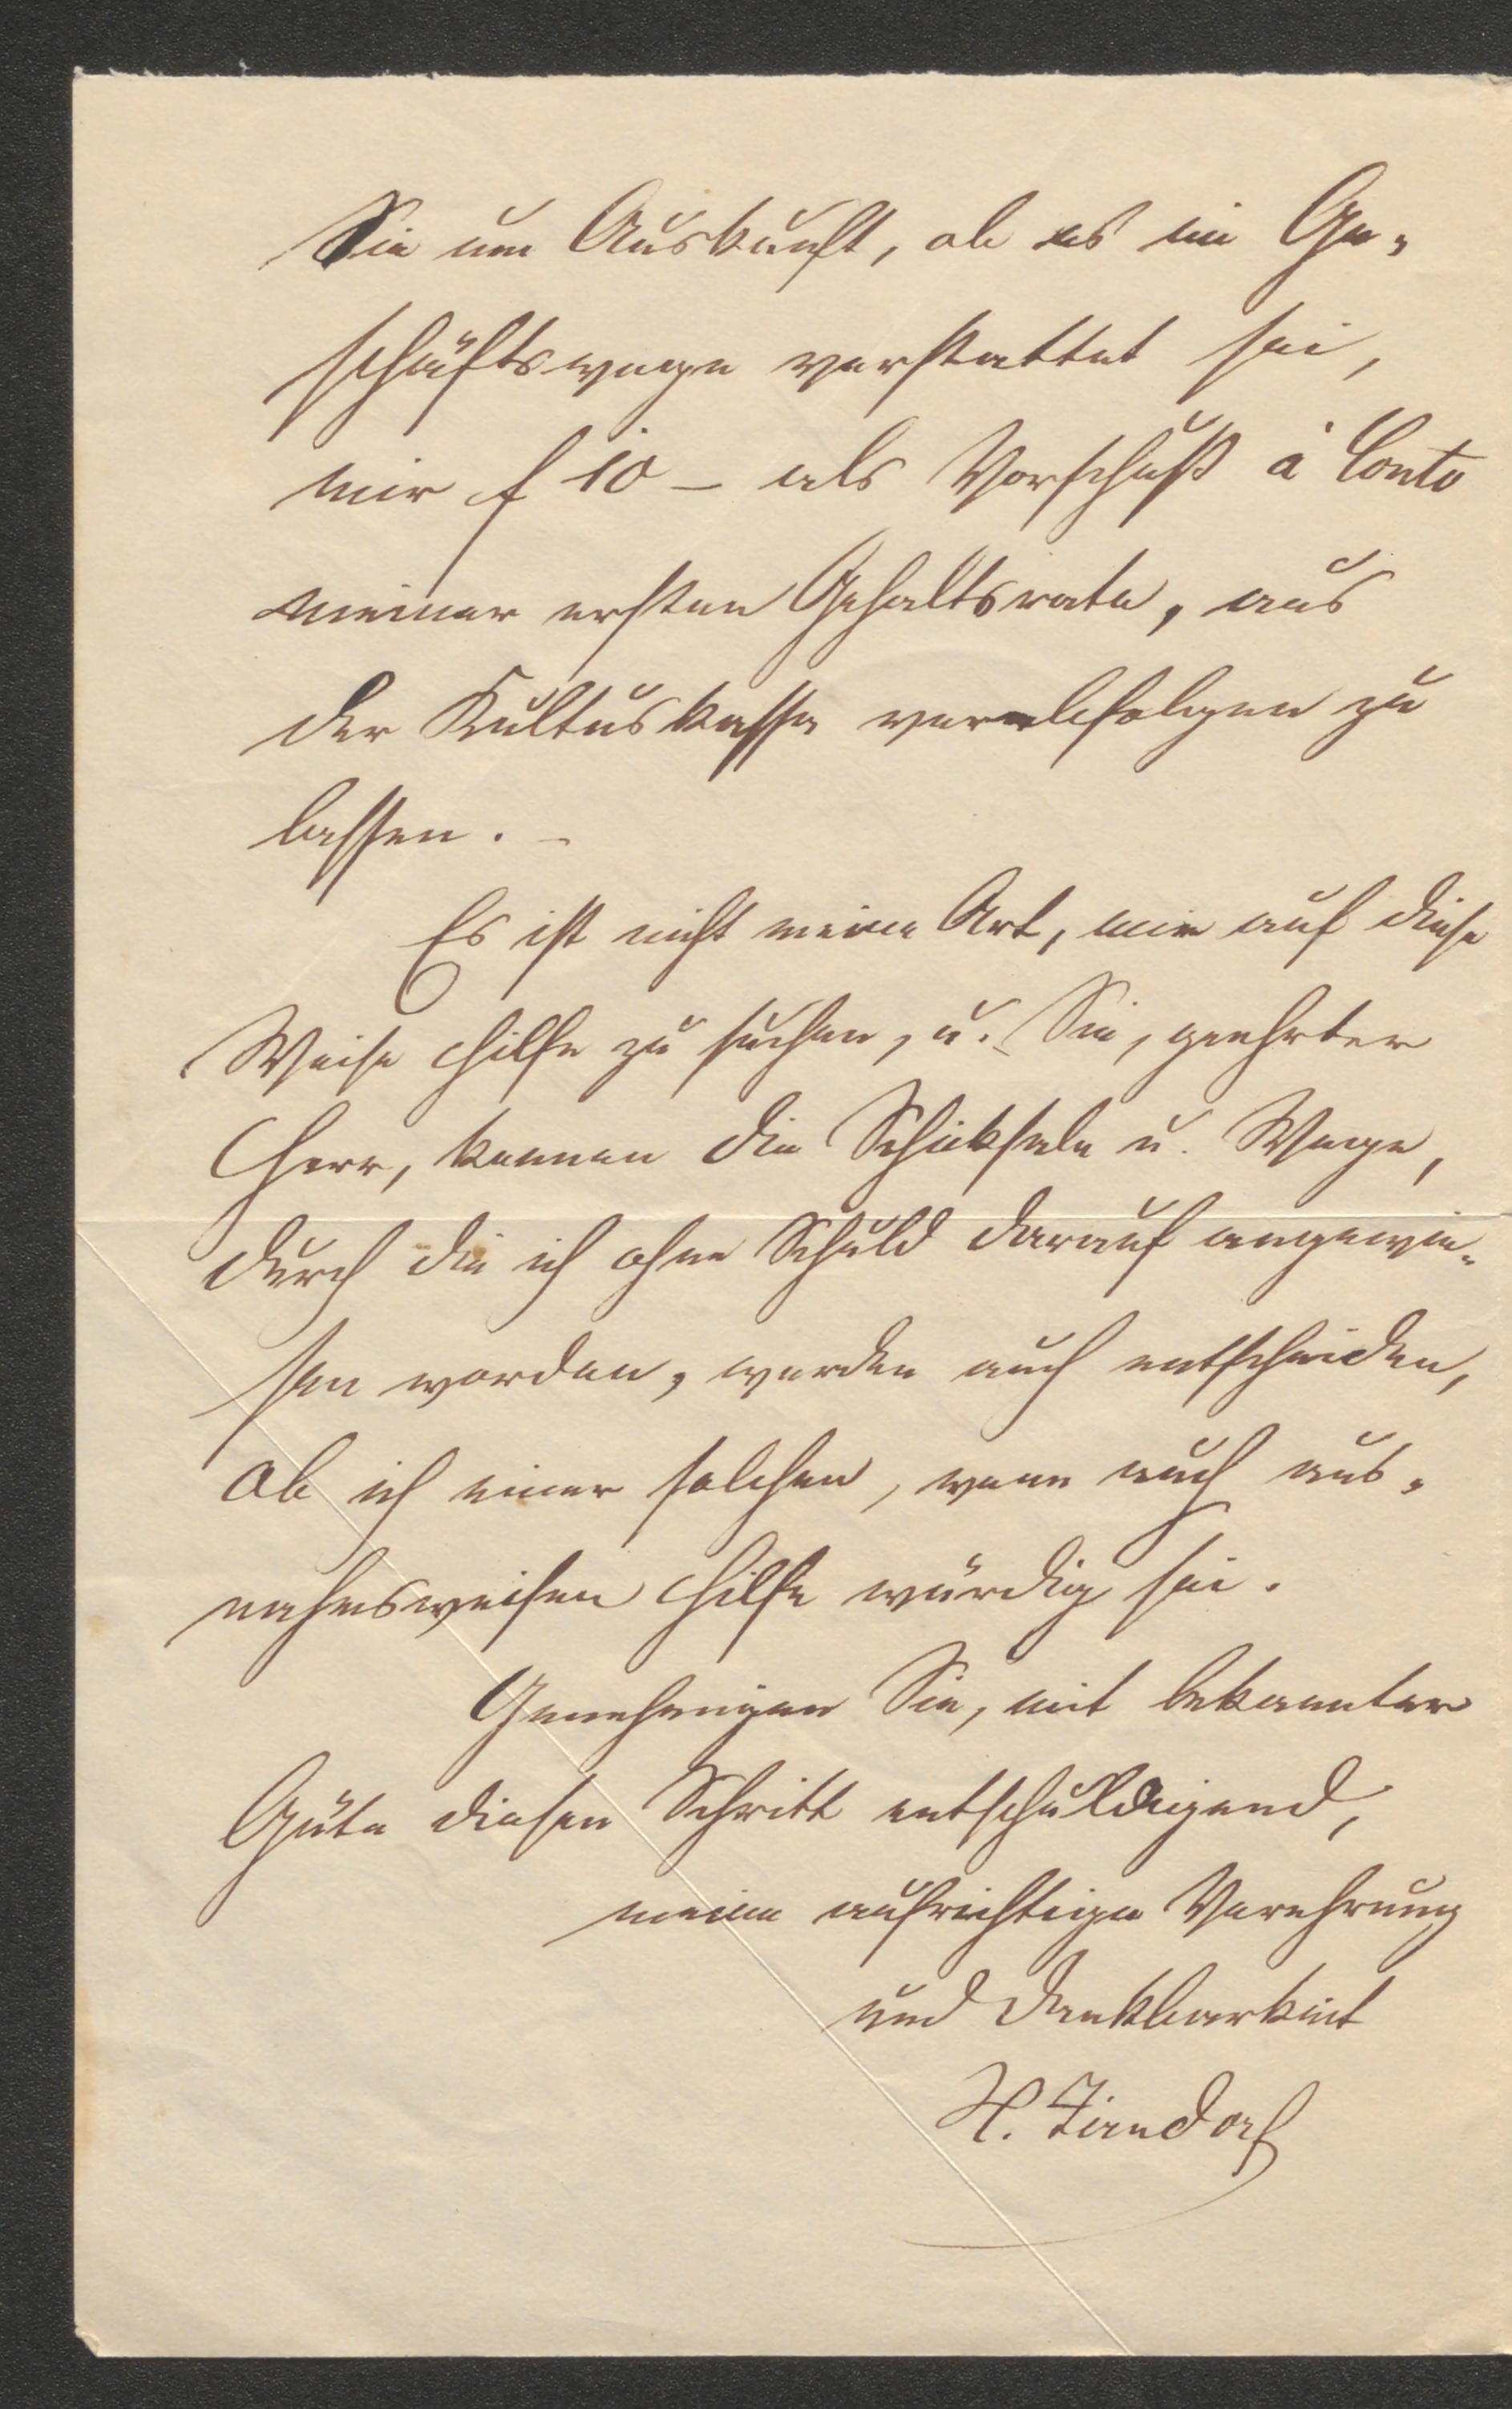 Sie um Auskunft, ob es im Ge-
schäftswege verstattet sei,
mir f 10 – als Vorschuß à Conto
meiner ersten Gehaltsrate, aus
der Kultuskasse verabfolgen zu
lassen. –
Es ist nicht meine Art, mir auf diese
Weise Hilfe zu suchen, u. Sie, geehrter
Herr, kennen die Schicksale u. Wege,
durch die ich ohne Schuld darauf angewie-
sen worden, werden auch entscheiden,
ob ich einer solchen, wenn auch aus-
nahmsweisen Hilfe würdig sei.
Genehmigen Sie, mit bekannter
Güte diesen Schritt entschuldigend,
meine aufrichtige Verehrung
und Dankbarkeit
H. Zirndorf